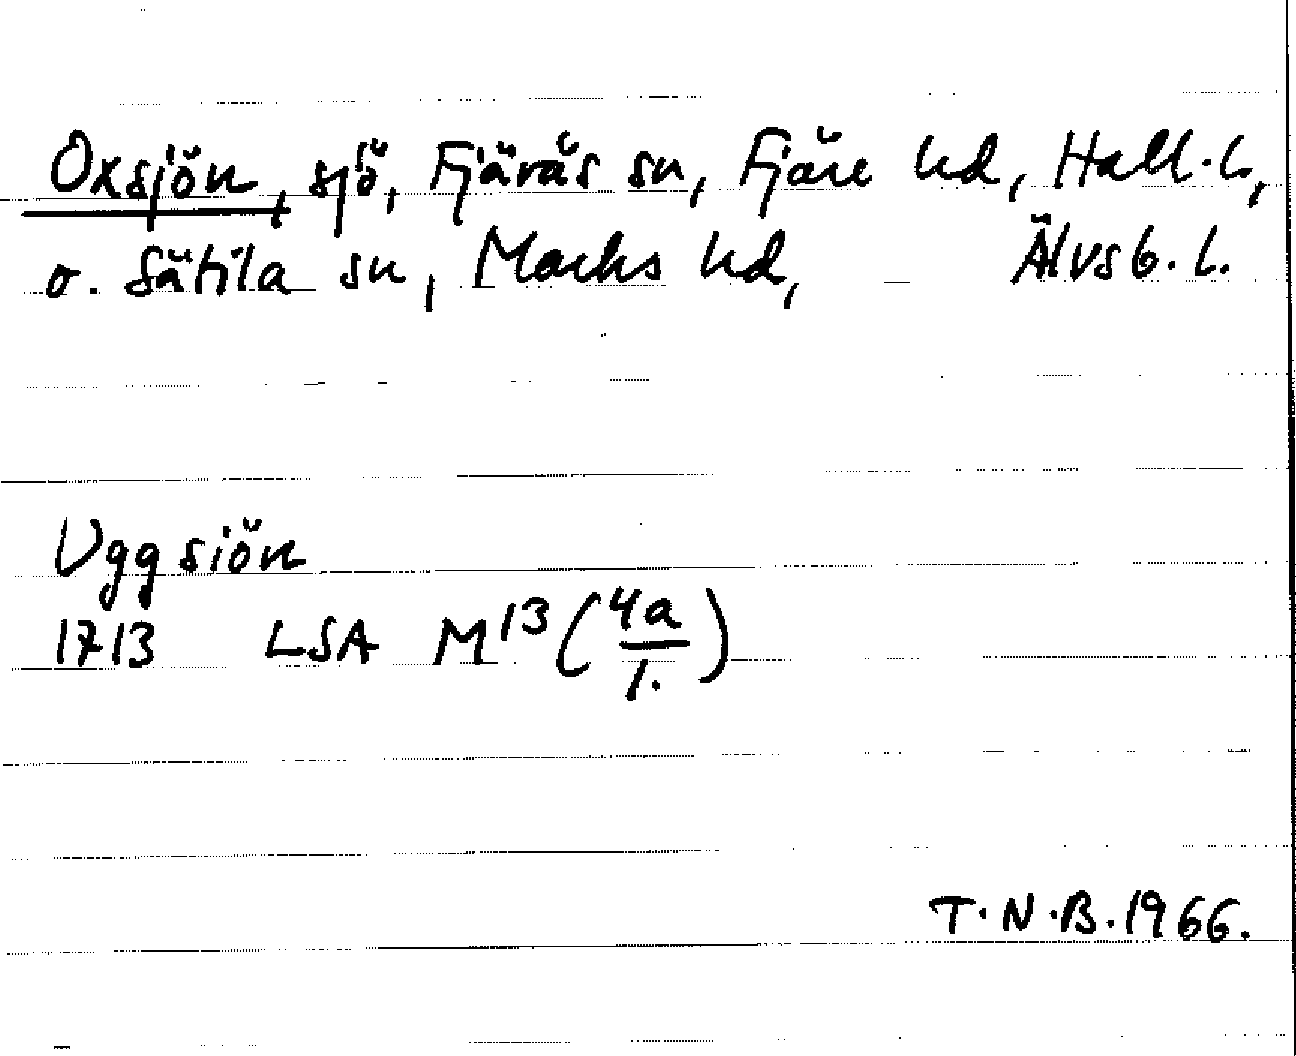 Oxsjön, sjö, Fjärås sn, Fjäre hd, Hall.l.,
o. Sätila sn, Marks hd, Älvsb.l.
Uggsiön
1713 LSA M13 (4a/1.)
T.N.B. 1966.